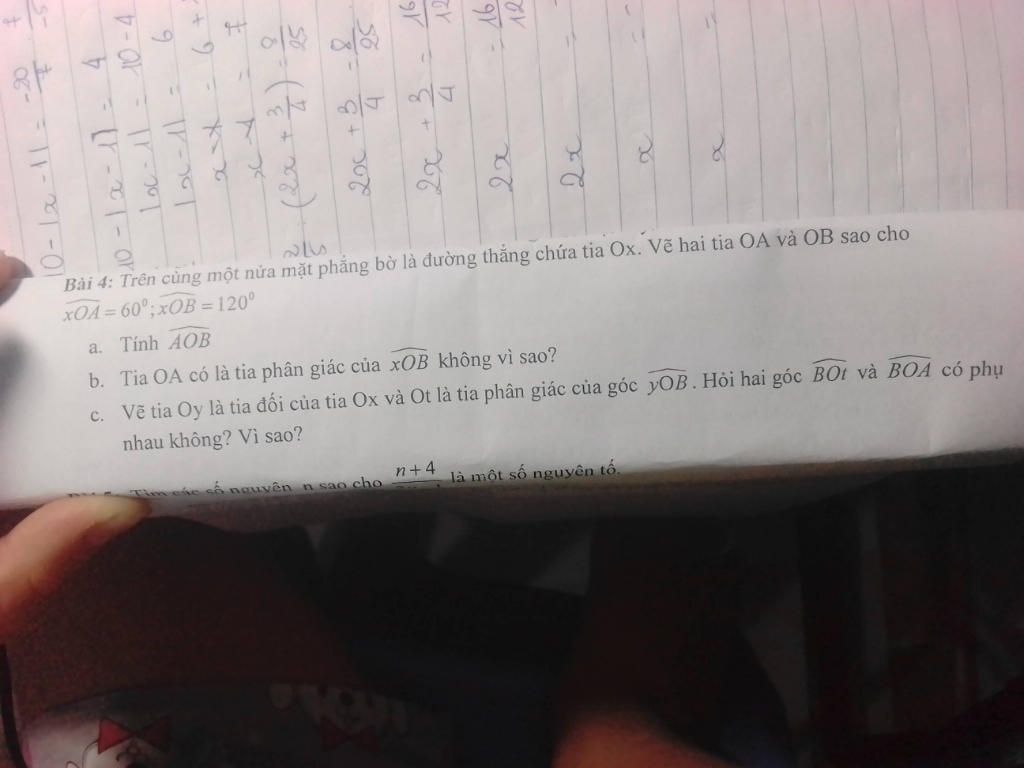 10 - |x - 1| = -20/7 · 7/-5
10 - |x - 1| = 4
|x - 1| = 10 - 4
|x - 1| = 6
x - 1 = 6 +
x - 1 = 7
2/5 : (2x + 3/4) = 8/25
2x + 3/4 = 8/25
2x + 3/4 = 16/12
2x = 16/12
2x =
x = -
x =
Bài 4: Trên cùng một nửa mặt phẳng bờ là đường thẳng chứa tia Ox. Vẽ hai tia OA và OB sao cho
\widehat{xOA} = 60⁰; \widehat{xOB} = 120⁰
a. Tính \widehat{AOB}
b. Tia OA có là tia phân giác của \widehat{xOB} không vì sao?
c. Vẽ tia Oy là tia đối của tia Ox và Ot là tia phân giác của góc \widehat{yOB}. Hỏi hai góc \widehat{BOt} và \widehat{BOA} có phụ
nhau không? Vì sao?
Tìm các số nguyên n sao cho n + 4 là một số nguyên tố.